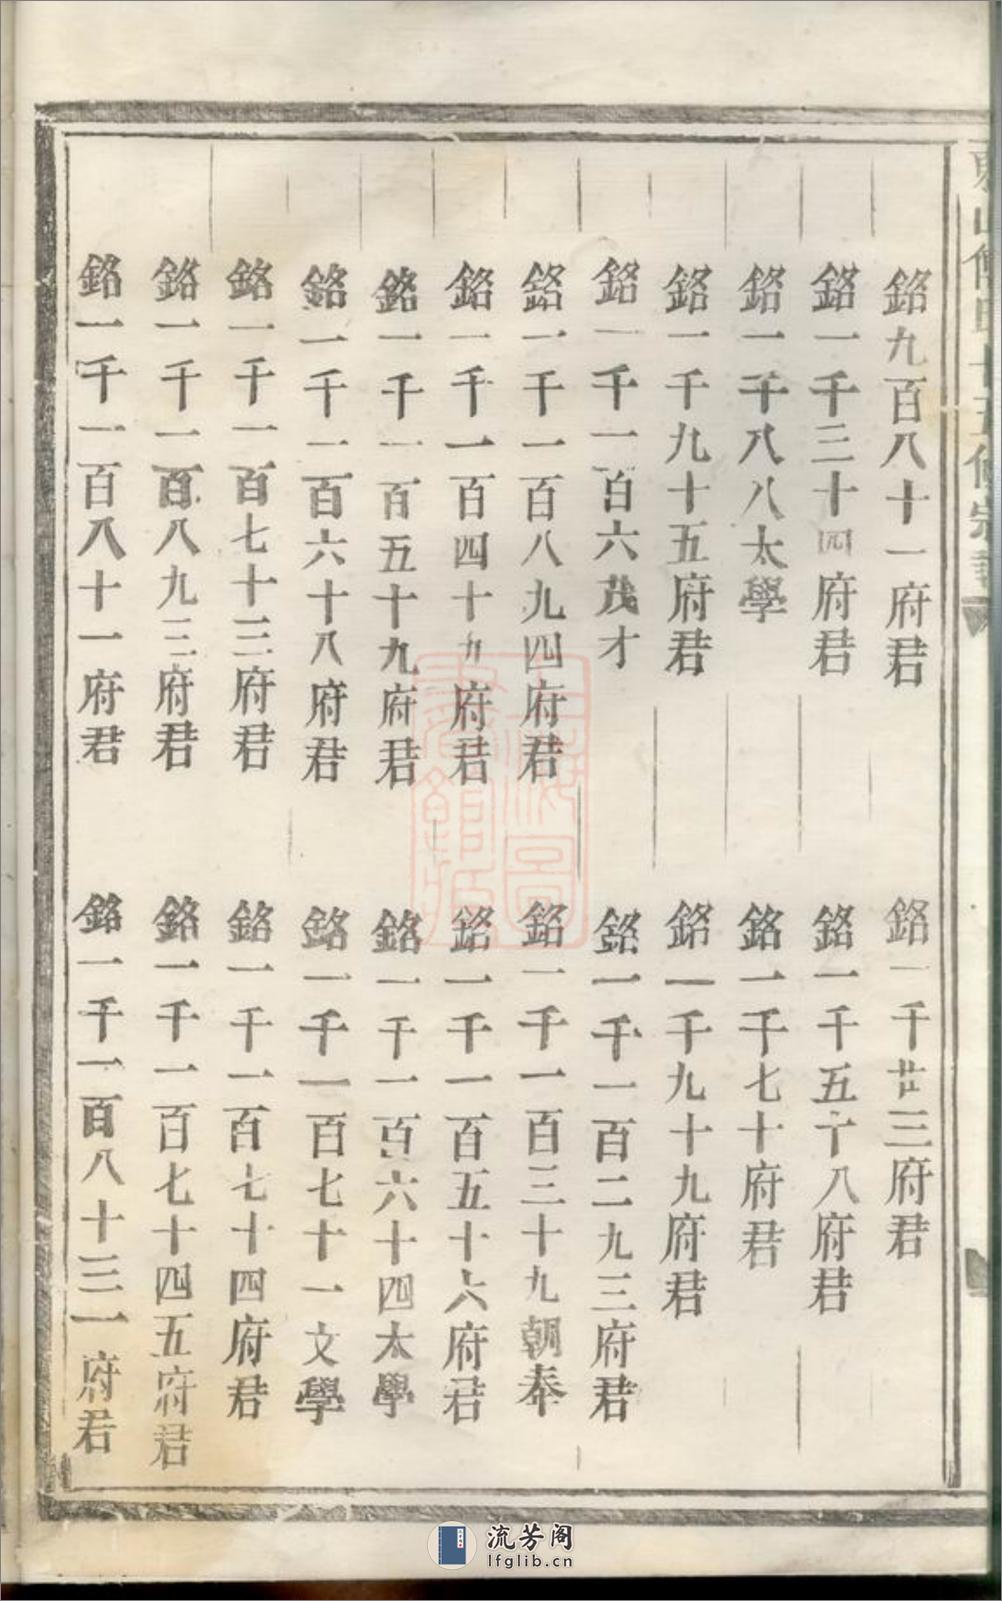 銘九百八十一府君
銘一千廿三府君
銘一千三十四府君
銘一千五十八府君
銘一千八八太學
銘一千七十府君
銘一千九十五府君
銘一千九十九府君
銘一千一百六茂才
銘一千一百二九三府君
銘一千一百八九四府君
銘一千一百三十九朝奉
銘一千一百四十九府君
銘一千一百五十六府君
銘一千一百五十九府君
銘一千一百六十四太學
銘一千一百六十八府君
銘一千一百七十一文學
銘一千一百七十三府君
銘一千一百七十四府君
銘一千一百八九三府君
銘一千一百七十四五府君
銘一千一百八十一府君
銘一千一百八十三一府君
氏十五修宗譜
上海圖書館藏
流芳阁
lfglib.cn